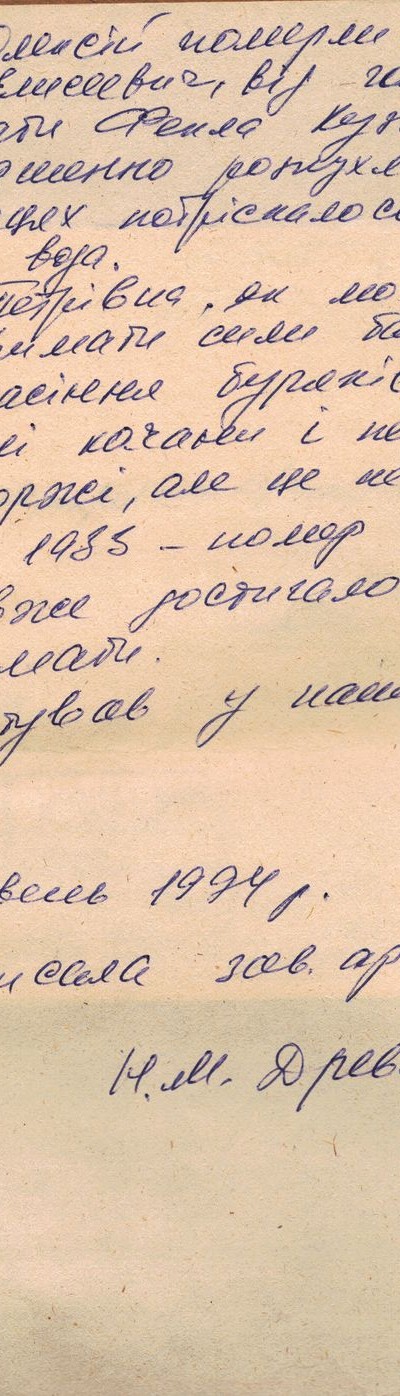 Олексій померли
Єлисеєвич, від го
ати Фекла Куз
ашенно розпухл
цях потріскалос
вода.
Петрівна, як мо
имати сили ба
асіння буряків
ні качани і не
оржі, але це не
1933 – помер
вже достигало
мати.
тував у наш
вень 1994 р.
исала зав. ар
Н.М. Древ